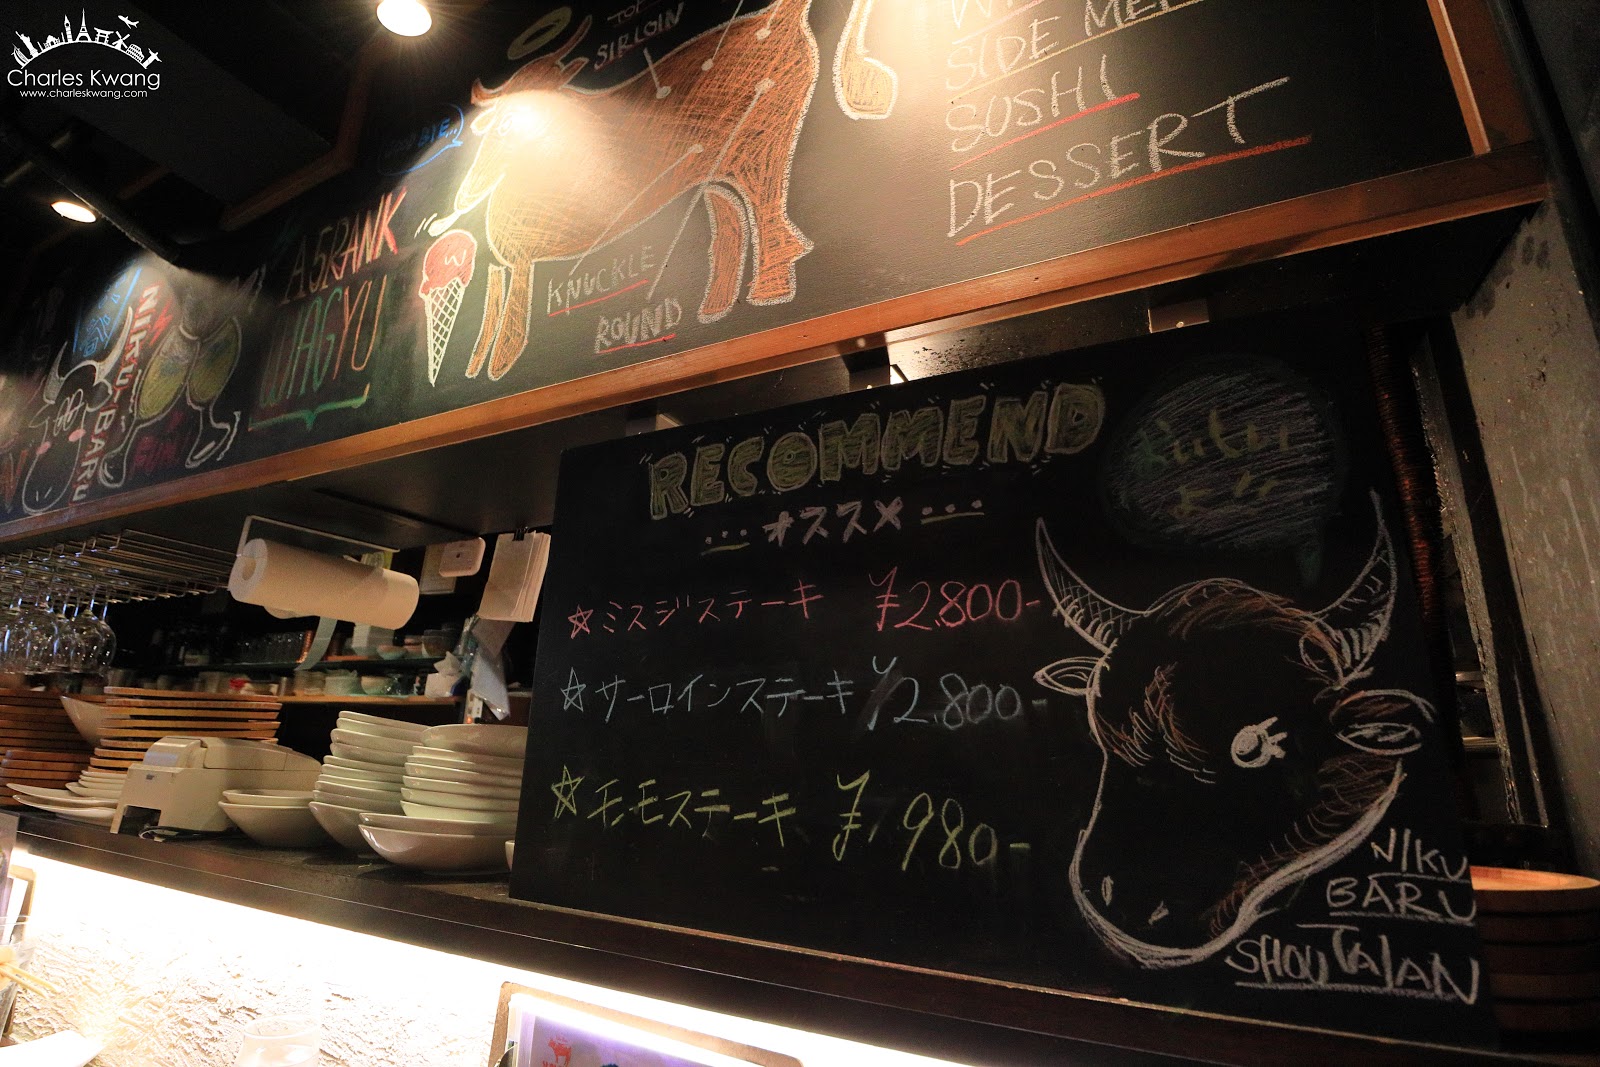 Charles Kwang
www.charleskwang.com
SIRLOIN
SIDE
SUSHI
DESSERT
A5RANK
WAGYU
KNUCKLE
ROUND
NIKU BARU
RECOMMEND
... オススメ ...
おいしい
よ
☆ミスジステーキ ¥2.800-
☆サーロインステーキ ¥2.800-
☆モモステーキ ¥1980-
NIKU
BARU
SHOUTAIAN